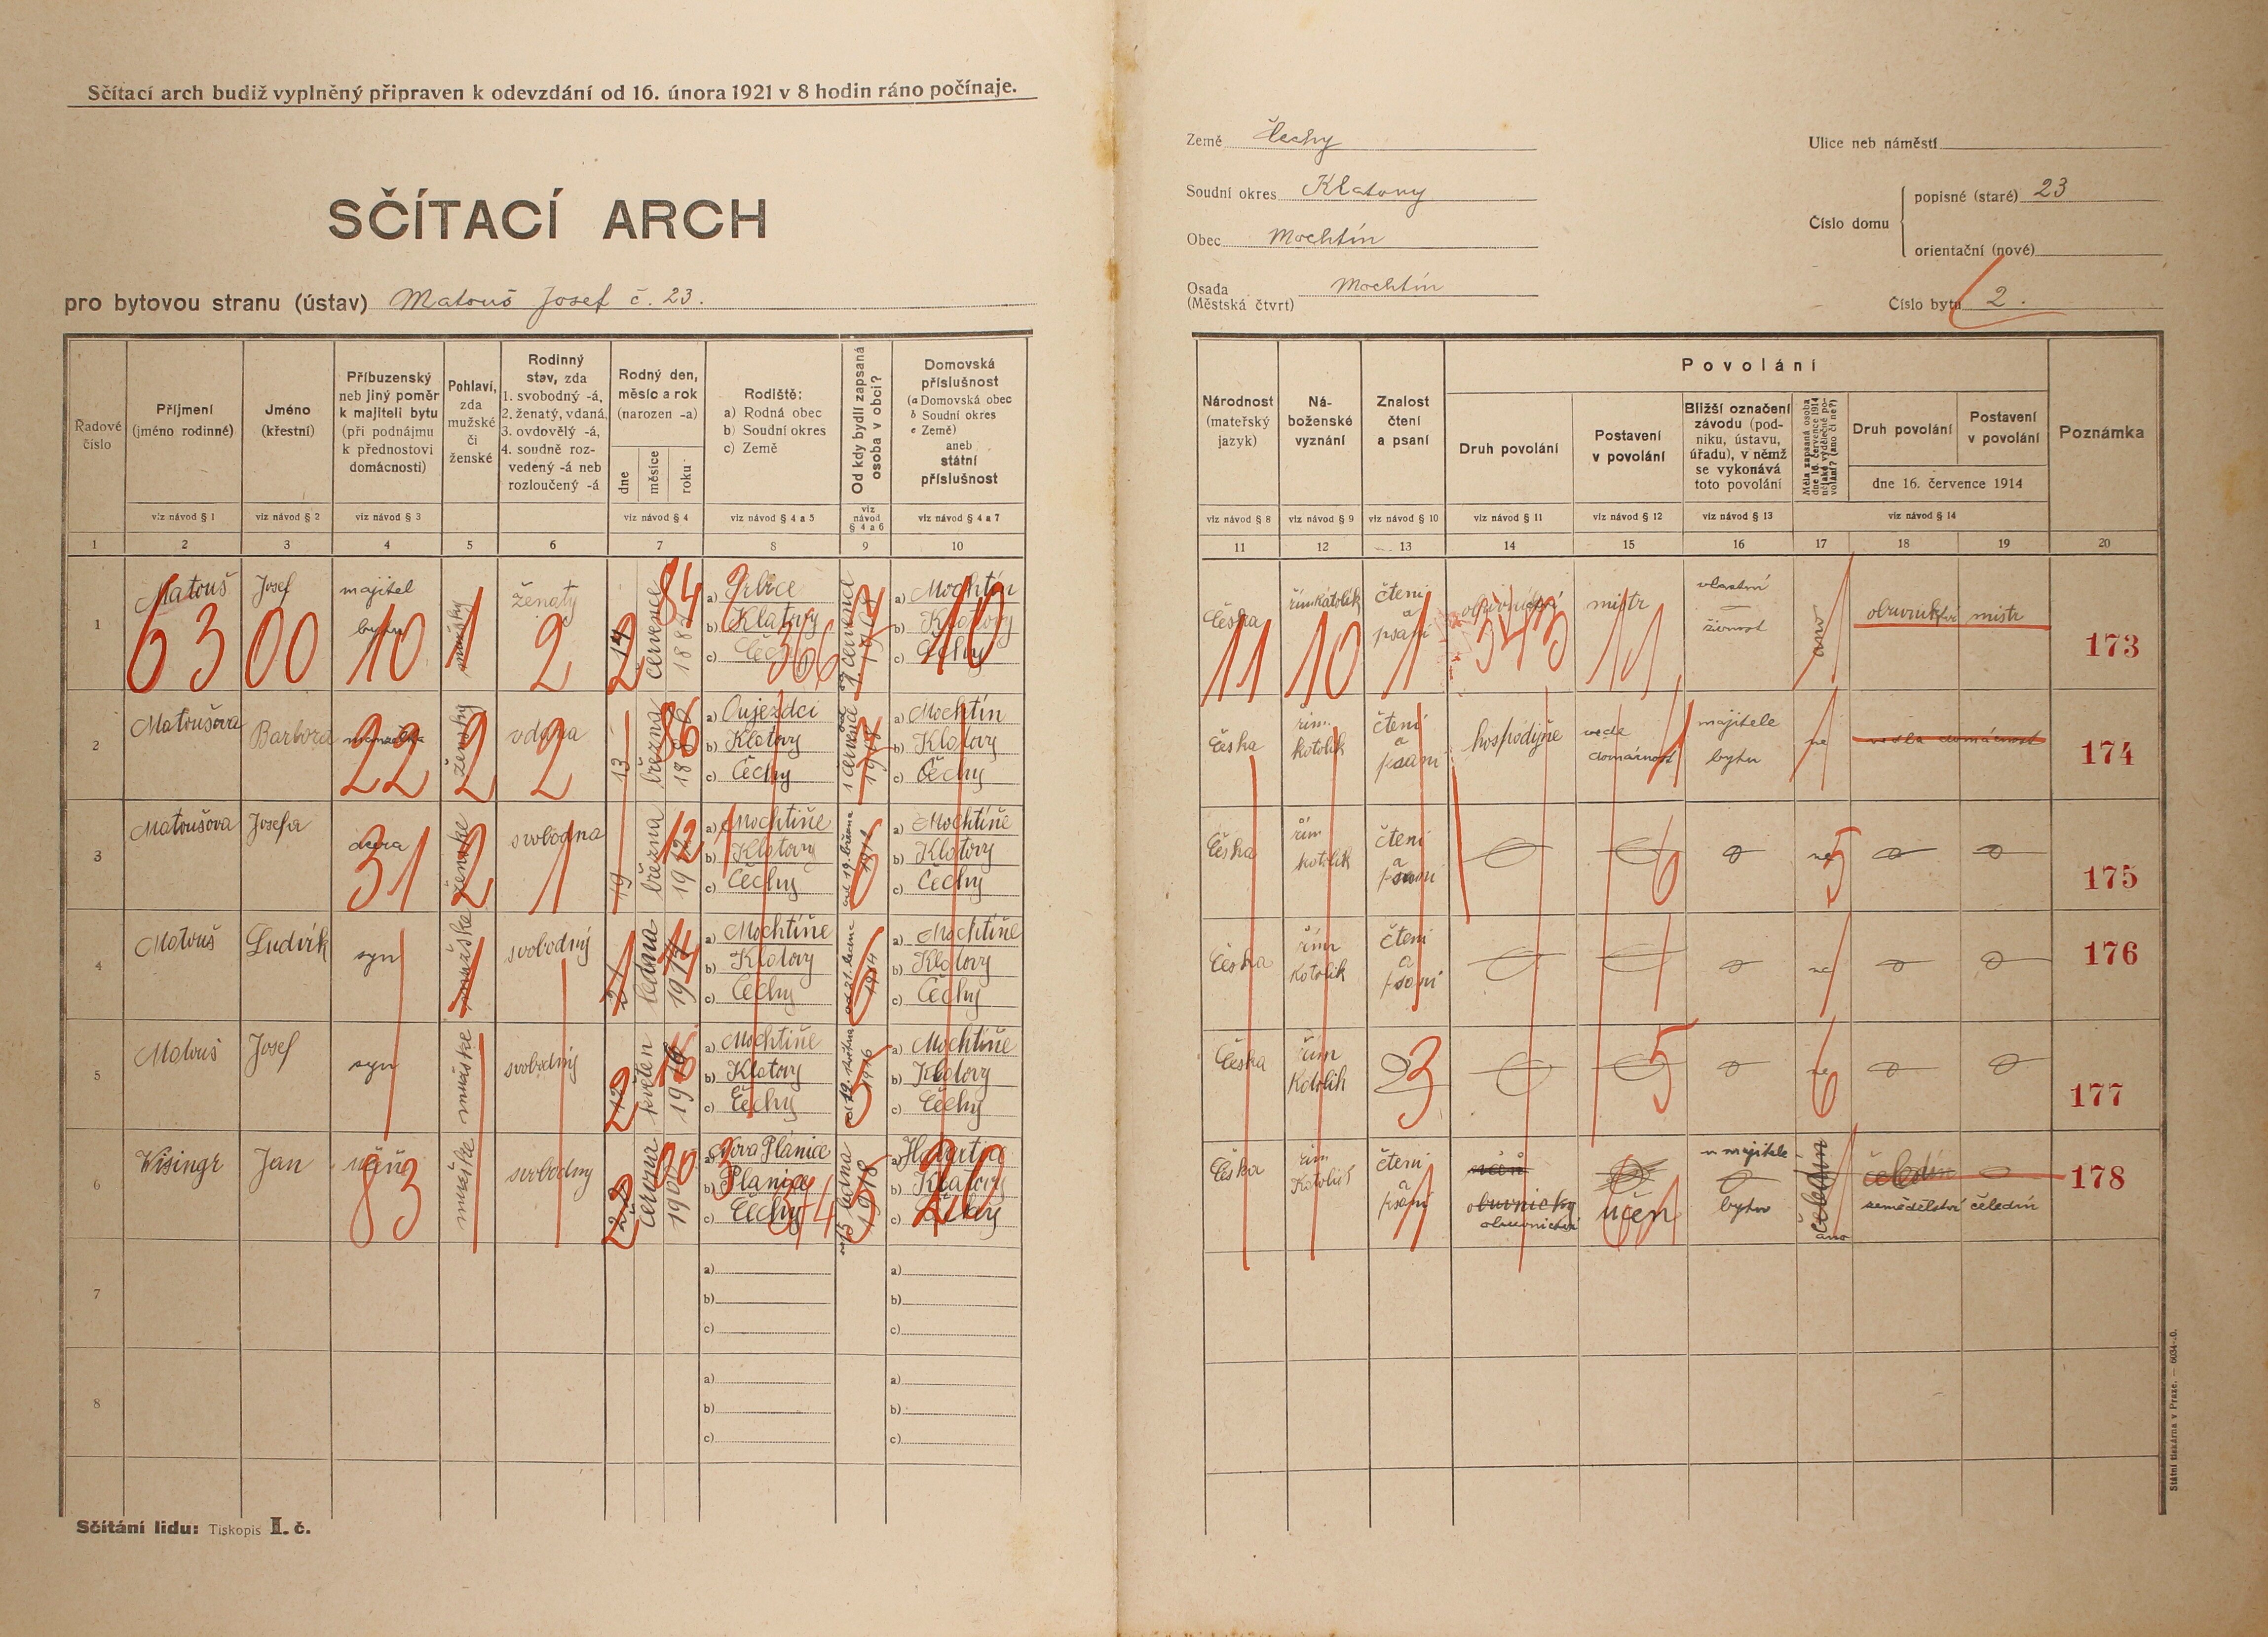 Sčítací arch budiž vyplněný připraven k odevzdání od 16. února 1921 v 8 hodin ráno počínaje.
SČÍTACÍ ARCH
pro bytovou stranu (ústav) Matouš Josef č. 23.
Země Čechy
Soudní okres Klatovy
Obec Mochtín
Osada Mochtín
(Městská čtvrt)
Ulice neb náměstí
Číslo domu
popisné (staré) 23
orientační (nové)
Číslo bytu 2.
Řadové číslo
Příjmení (jméno rodinné)
Jméno (křestní)
Příbuzenský neb jiný poměr k majiteli bytu (při podnájmu k přednostovi domácnosti)
Pohlaví, zda mužské či ženské
Rodinný stav, zda
1. svobodný -á,
2. ženatý, vdaná,
3. ovdovělý -á,
4. soudně rozvedený -á neb rozloučený -á
Rodný den, měsíc a rok (narozen -a)
dne měsíce roku
Rodiště:
a) Rodná obec
b) Soudní okres
c) Země
Od kdy bydlí zapsaná osoba v obci?
Domovská příslušnost
(a Domovská obec
b Soudní okres
c Země)
aneb státní příslušnost
viz návod § 1 viz návod § 2 viz návod § 3 viz návod § 4 viz návod § 4 a 5 viz návod § 4 a 6 viz návod § 4 a 7
1 2 3 4 5 6 7 8 9 10
Národnost (mateřský jazyk)
Náboženské vyznání
Znalost čtení a psaní
Povolání
Druh povolání
Postavení v povolání
Bližší označení závodu (podniku, ústavu, úřadu), v němž se vykonává toto povolání
Měla zapsaná osoba dne 16. července 1914 nějaké výdělečné povolání? (ano či ne?)
Druh povolání
Postavení v povolání
dne 16. července 1914
Poznámka
viz návod § 8 viz návod § 9 viz návod § 10 viz návod § 11 viz návod § 12 viz návod § 13 viz návod § 14
11 12 13 14 15 16 17 18 19 20
1 Matouš Josef majitel bytu mužský ženatý 14 července
a) b) Klatovy c) Čechy
a) Mochtín b) Klatovy c) Čechy
63 00 10 1 2 2 84 366 10
Česka řím katolík čteni a psaní obuvnictví mistr vlastní živnost ano obuvnictví mistr 173
11 10 1
2 Matoušova Barbora manželka ženský vdana 13 března
a) Oujezdci b) Klatovy c) Čechy
1918
a) Mochtín b) Klatovy c) Čechy
22 2 2 86
Česka řím. katolík čtení a psaní hospodyňe vede domácnost majitele bytu ne 174
3 Matoušova Josefa dcera ženske svobodna 19 března 1912
a) Mochtíňe b) Klatovy c) Čechy
od 19. března 1912
a) Mochtíňe b) Klatovy c) Čechy
31 2 1 12 6
Česka řím katolík čtení a psaní ne 175
6 5
4 Matouš Ludvík syn mužske svobodný 21 ledna 1914
a) Mochtíňe b) Klatovy c) Čechy
od 21. ledna 1914
a) Mochtíňe b) Klatovy c) Čechy
14 6
Česka řím katolík čteni a psaní ne 176
5 Matouš Josef syn mužske svobodný 12 květen 1916
a) Mochtíňe b) Klatovy c) Čechy
1916
a) Mochtíňe b) Klatovy c) Čechy
2 16 5
Česka řím katolík ne 177
3 5 6
6 Wisingr Jan mužske svobodny 22 června
a) Nova Plánice b) Planice c) Čechy
ledna 1918
b) Klatovy c) Čechy
83 2 3 20
Česka řím katolík čteni a psaní obuvnicky obuvnictví učen u majitele bytu čeledín ano čeledín zemědělství čeledín 178
7 a) b) c) a) b) c)
8 a) b) c) a) b) c)
Sčítání lidu: Tiskopis I. č.
Státní tiskárna v Praze. — 6034-.0.